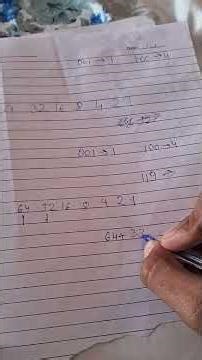 001→1 100→4
32 16 8 4 2 1
001→1 100→4
119→
64 32 16 8 4 2 1
1 1
64+ 32